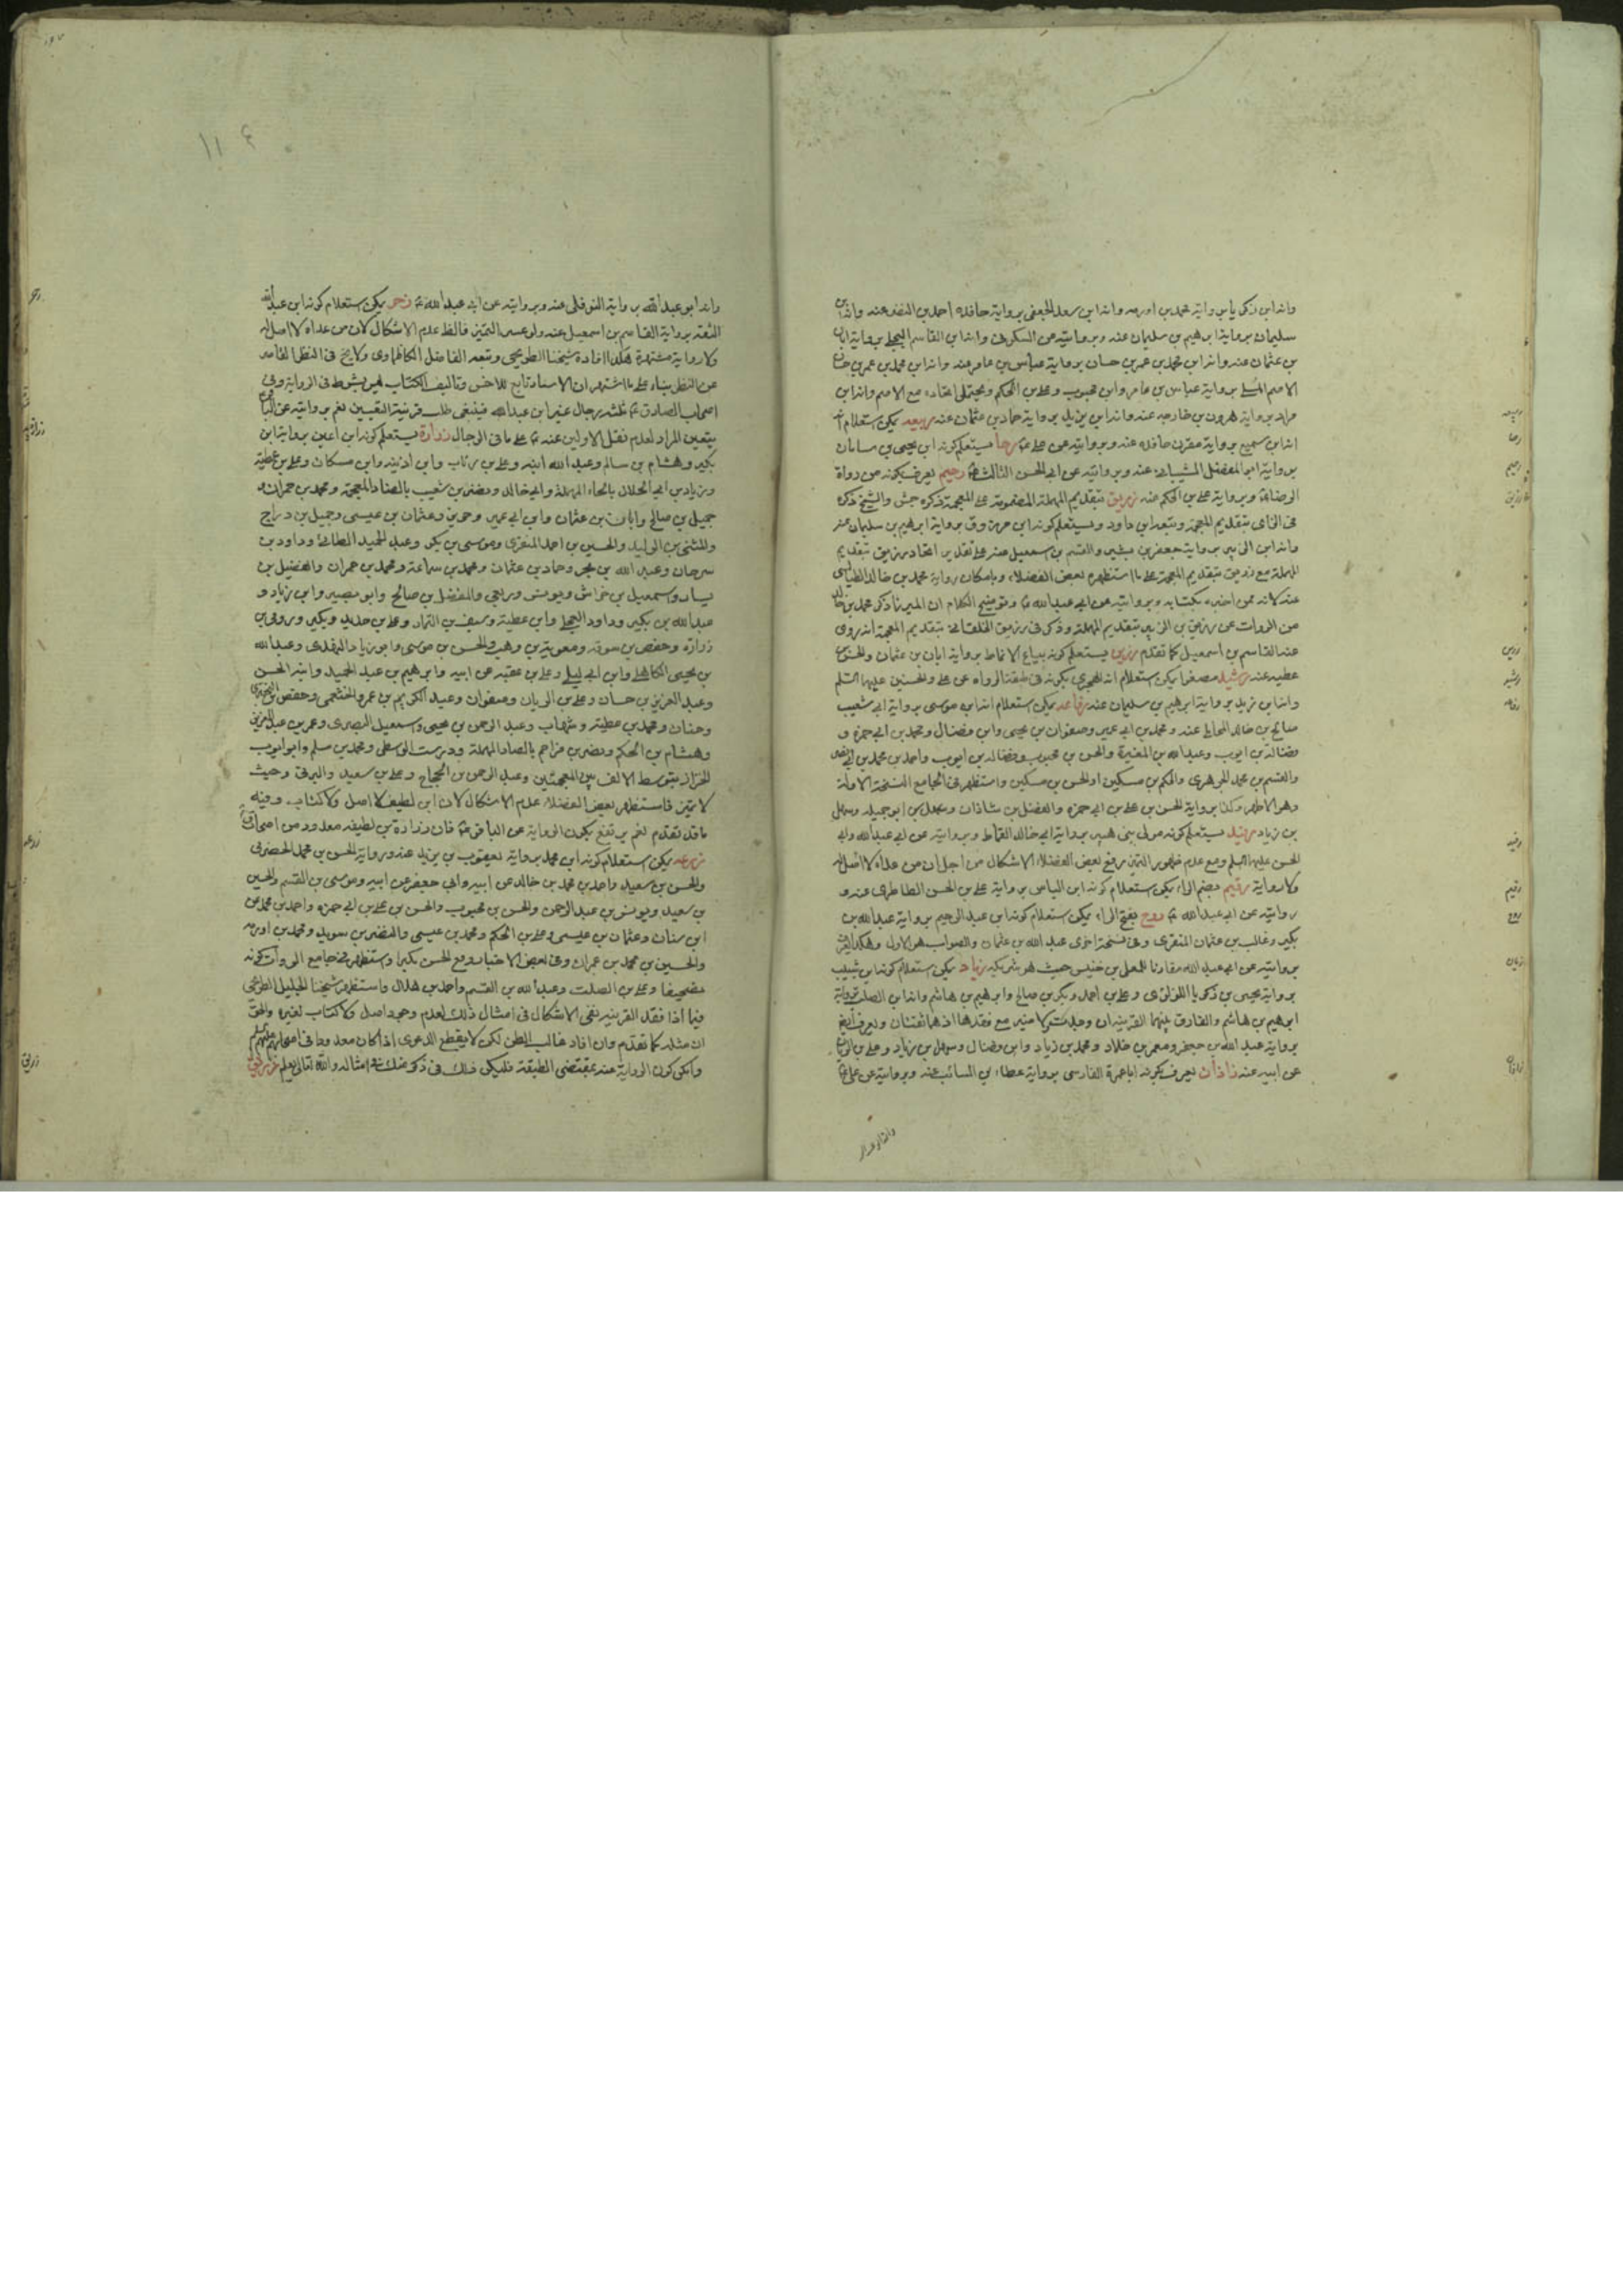 وانه ابن زكريا برواية محمد بن اورمه وانه ابن سعد الجعفي برواية حافده احمد بن النضر عنه وانه ابن
سليمان برواية ابرهيم بن سليمان عنه وبروايته عن السكوني وانه ابن القاسم البجلي برواية ابان
بن عثمان عنه وانه ابن محمد بن عمر بن حسان برواية عباس بن عامر عنه وانه ابن محمد بن عمر بن
الاصم المسلي برواية عباس بن عامر وابن محبوب وعلي بن الحكم ويحتمل اتحاده مع الاصم وانه ابن
برواية هرون بن خارجه عنه وانه ابن يزيد برواية حماد بن عثمان عنه ربيعه يمكن استعلام
انه ابن سميع برواية مقرن حافده عنه وبروايته عن علي ع رجا يستعلم كونه ابن يحيى بن سامان
برواية ابو المفضل الشيباني عنه وبروايته عن ابي الحسن الثالث ع رحيم يعرف بكونه من رواة
الرضا ع وبرواية علي بن الحكم عنه زريق بتقديم المهملة المضمومة على المعجمة ذكره جش والشيخ ذكره
في الزاي بتقديم المعجمة ويستعلم كونه ابن مرزوق برواية ابرهيم بن سليمان عنه
وانه ابن الزبير برواية جعفر بن بشير والقسم بن اسمعيل عنه على تقدير اتحاد رزيق بتقديم
المهملة مع زريق بتقديم المعجمة على ما استظهره بعض الفضلاء وبامكان رواية محمد بن خالد الطيالسي
عنه لانه ممن اخبره بكتابه وبروايته عن ابي عبد الله ع وتوضيح الكلام ان الميرزا ذكر محمد بن خالد
من الروات عن رزيق بن الزبير بتقديم المهملة وذكر في زريق الخلقاني بتقديم المعجمة انه روى
عنه القاسم بن اسمعيل كما تقدم رزين يستعلم كونه بياع الانماط برواية ابان بن عثمان والحسن بن
عطيه عنه رشيد مصغرا يمكن استعلام انه الهجري بكونه في طبقة الرواه عن علي والحسنين عليهم السلم
وانه ابن زيد برواية ابرهيم بن سليمان عنه رفاعه يمكن استعلام انه ابن موسى برواية ابي شعيب
صالح بن خالد المحاملي عنه ومحمد بن ابي عمير وصفوان بن يحيى وابن فضال ومحمد بن ابي حمزه و
فضالة بن ايوب وعبد الله بن المغيرة والحسن بن محبوب وفضاله بن ايوب واحمد بن محمد بن ابي نصر
والقسم بن محمد الجوهري والحكم بن مسكين او الحسن بن مسكين واستظهر في الجامع النسخة الاولة
وهو الاظهر وكذا برواية الحسن بن علي بن ابي حمزه والفضل بن شاذان وسهل بن ابو جميله وسهل
بن زياد رفيد يستعلم كونه مولى بني هبيره برواية ابي خالد القماط وبروايته عن ابي عبد الله وابي
الحسن عليهما السلم ومع عدم ظهور التميز رفع بعض الفضلاء الاشكال من اجل ان من عداه لا اصل له
ولا رواية رقيم بضم الراء يمكن استعلام كونه ابن الياس برواية علي بن الحسن الطاطري عنه و
روايته عن ابي عبد الله ع روح بفتح الراء يمكن استعلام كونه ابن عبد الرحيم برواية عبد الله بن
بكير وغالب بن عثمان المنقري وفي نسخة اخرى عبد الله بن عثمان والصواب هو الاول وهكذا
بروايته عن ابي عبد الله مقارنا للمعلى بن خنيس حيث هو شريكه زياد يمكن استعلام كونه ابن شبيب
برواية يحيى بن زكريا اللؤلؤي وعلي بن احمد وبكر بن صالح وابرهيم بن هاشم وانه ابن الصلت برواية
ابرهيم بن هاشم والفارق بينهما القرينة ان مع فقدها اذ هما ثقتان ويعرف ايض
برواية عبد الله بن جعفر ومعمر بن خلاد ومحمد بن زياد وابن فضال وسهل بن زياد وعلي بن الريان
عن ابيه عنه زاذان يعرف بكونه ابا عمرة الفارسي برواية عطاء بن السائب عنه وبروايته عن علي ع
ربيعه
رجا
رحيم
رزيق
رزين
رشيد
رفاعه
رفيد
رقيم
روح
زاذان
١١٤
وانه ابو عبد الله برواية النوفلي عنه وبروايته عن ابي عبد الله ع زحر يمكن استعلام كونه ابن عبد الله
الثقة برواية القاسم بن اسمعيل عنه ولو عسر التميز فالظ عدم الاشكال لان من عداه لا اصل له
ولا رواية مشتهرة هكذا افاده شيخنا الطريحي وتبعه الفاضل الكاظماوي ولا يخ في النظر القاصر
عن النظر بناء على ما اشتهر ان الاسناد تابع للاخس وتاليف الكتاب ليس بشرط في الرواية وفي
اصحاب الصادق ع ثلثة رجال غير ابن عبد الله فينبغي طلب قرينة التعيين نعم بروايته عن الباقر ع
يتعين المراد لعدم نقل الاولين عنه ع على ما في الرجال زرارة يستعلم كونه ابن اعين برواية ابن
بكير وهشام بن سالم وعبد الله ابنه وعلي بن رئاب وابن اذينه وابن مسكان وعلي بن عطية
وزياد بن ابي الحلال بالحاء المهملة وابي خالد ونضر بن شعيب بالضاد المعجمة ومحمد بن حمران و
جميل بن صالح وابان بن عثمان وابن ابي عمير وحريز وعثمان بن عيسى وجميل بن دراج
والمثنى بن الوليد والحسين بن احمد المنقري وموسى بن بكر وعبد الحميد الطائي وداود بن
سرحان وعبد الله بن بحر وحماد بن عثمان ومحمد بن سماعة ومحمد بن حمران والفضيل بن
يسار واسمعيل بن خراش ويونس ودراج والمفضل بن صالح وابو بصير وابن زياد و
عبد الله بن بكير وداود العجلي وابن عطية وسيف بن التمار وعلي بن حديد وبكير ورومي بن
زرارة وحفص بن سوقه ومعويه بن وهب والحسن بن موسى وابو زياد النهدي وعبد الله
بن يحيى الكاهلي وابن ابي ليلى وعلي بن عقبه عن ابيه وابرهيم بن عبد الحميد وابنه الحسن
وعبد العزيز بن حسان وعلي بن الريان وصفوان وعبد الكريم بن عمرو الخثعمي وحفص بن البختري
وحنان ومحمد بن عطية وشهاب وعبد الرحمن بن يحيى واسمعيل البصري وعمر بن عبد العزيز
وهشام بن الحكم ونصر بن مزاحم بالصاد المهملة ودرست الواسطي ومحمد بن مسلم وابو ايوب
الخزاز بتوسط الالف بين المعجمتين وعبد الرحمن بن الحجاج وعلي بن سعيد والبرقي وحيث
لا تميز فاستظهر بعض الفضلاء عدم الاشكال لان ابن لطيفه لا اصل ولا كتاب وفيه
ما قد تقدم نعم يرتفع بكون الرواية عن الباقر ع فان زرارة بن لطيفه معدود من اصحاب ق
زرعه يمكن استعلام كونه ابن محمد برواية يعقوب بن يزيد عنه ورواية الحسن بن محمد الحضرمي
والحسن بن سعيد واحمد بن محمد بن خالد عن ابيه وابي جعفر عن ابيه وموسى بن القسم والحسين
بن سعيد ويونس بن عبد الرحمن والحسن بن محبوب والحسن بن علي بن ابي حمزه واحمد بن محمد عن
ابن سنان وعثمان بن عيسى وعلي بن الحكم ومحمد بن عيسى والنضر بن سويد ومحمد بن اورمه
والحسين بن محمد بن عمران وفي بعض الاخبار ومع الحسن مكبرا واستظهر في جامع الروات كونه
تصحيفا وعلي بن الصلت وعبد الله بن القسم واحمد بن هلال واستظهر شيخنا الجليل الطريحي
فيما اذا فقد القرينه نفى الاشكال في امثال ذلك لعدم وجود اصل ولا كتاب لغيره والحق
ان مثله كما تقدم وان افاد غالب الظن لكن لا يقطع الدعوى اذا كان معدودا في اصحابهم عليهم السلم
وامكن كون الرواية عنه بمقتضى الطبقة فليكن ذلك في ذكر منك في امثاله والله تعالى يعلم زريق
زحر
زرارة
زرعه
زريق